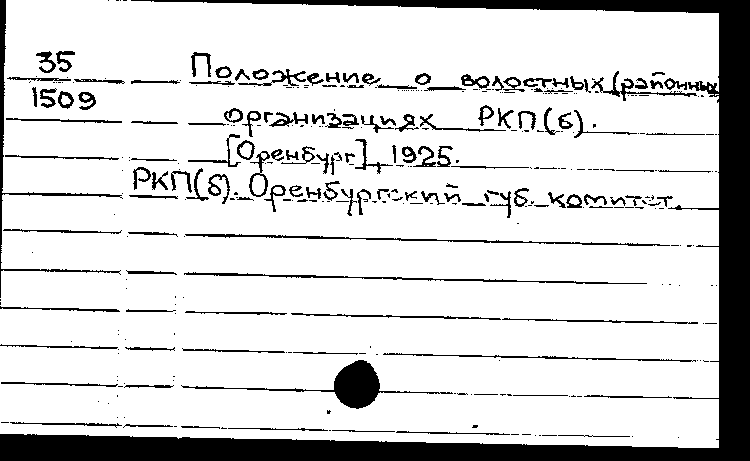 35 Положение о волостных (районных)
1509 организациях РКП(б).
[Оренбург], 1925.
РКП(б). Оренбургский губ. комитет.